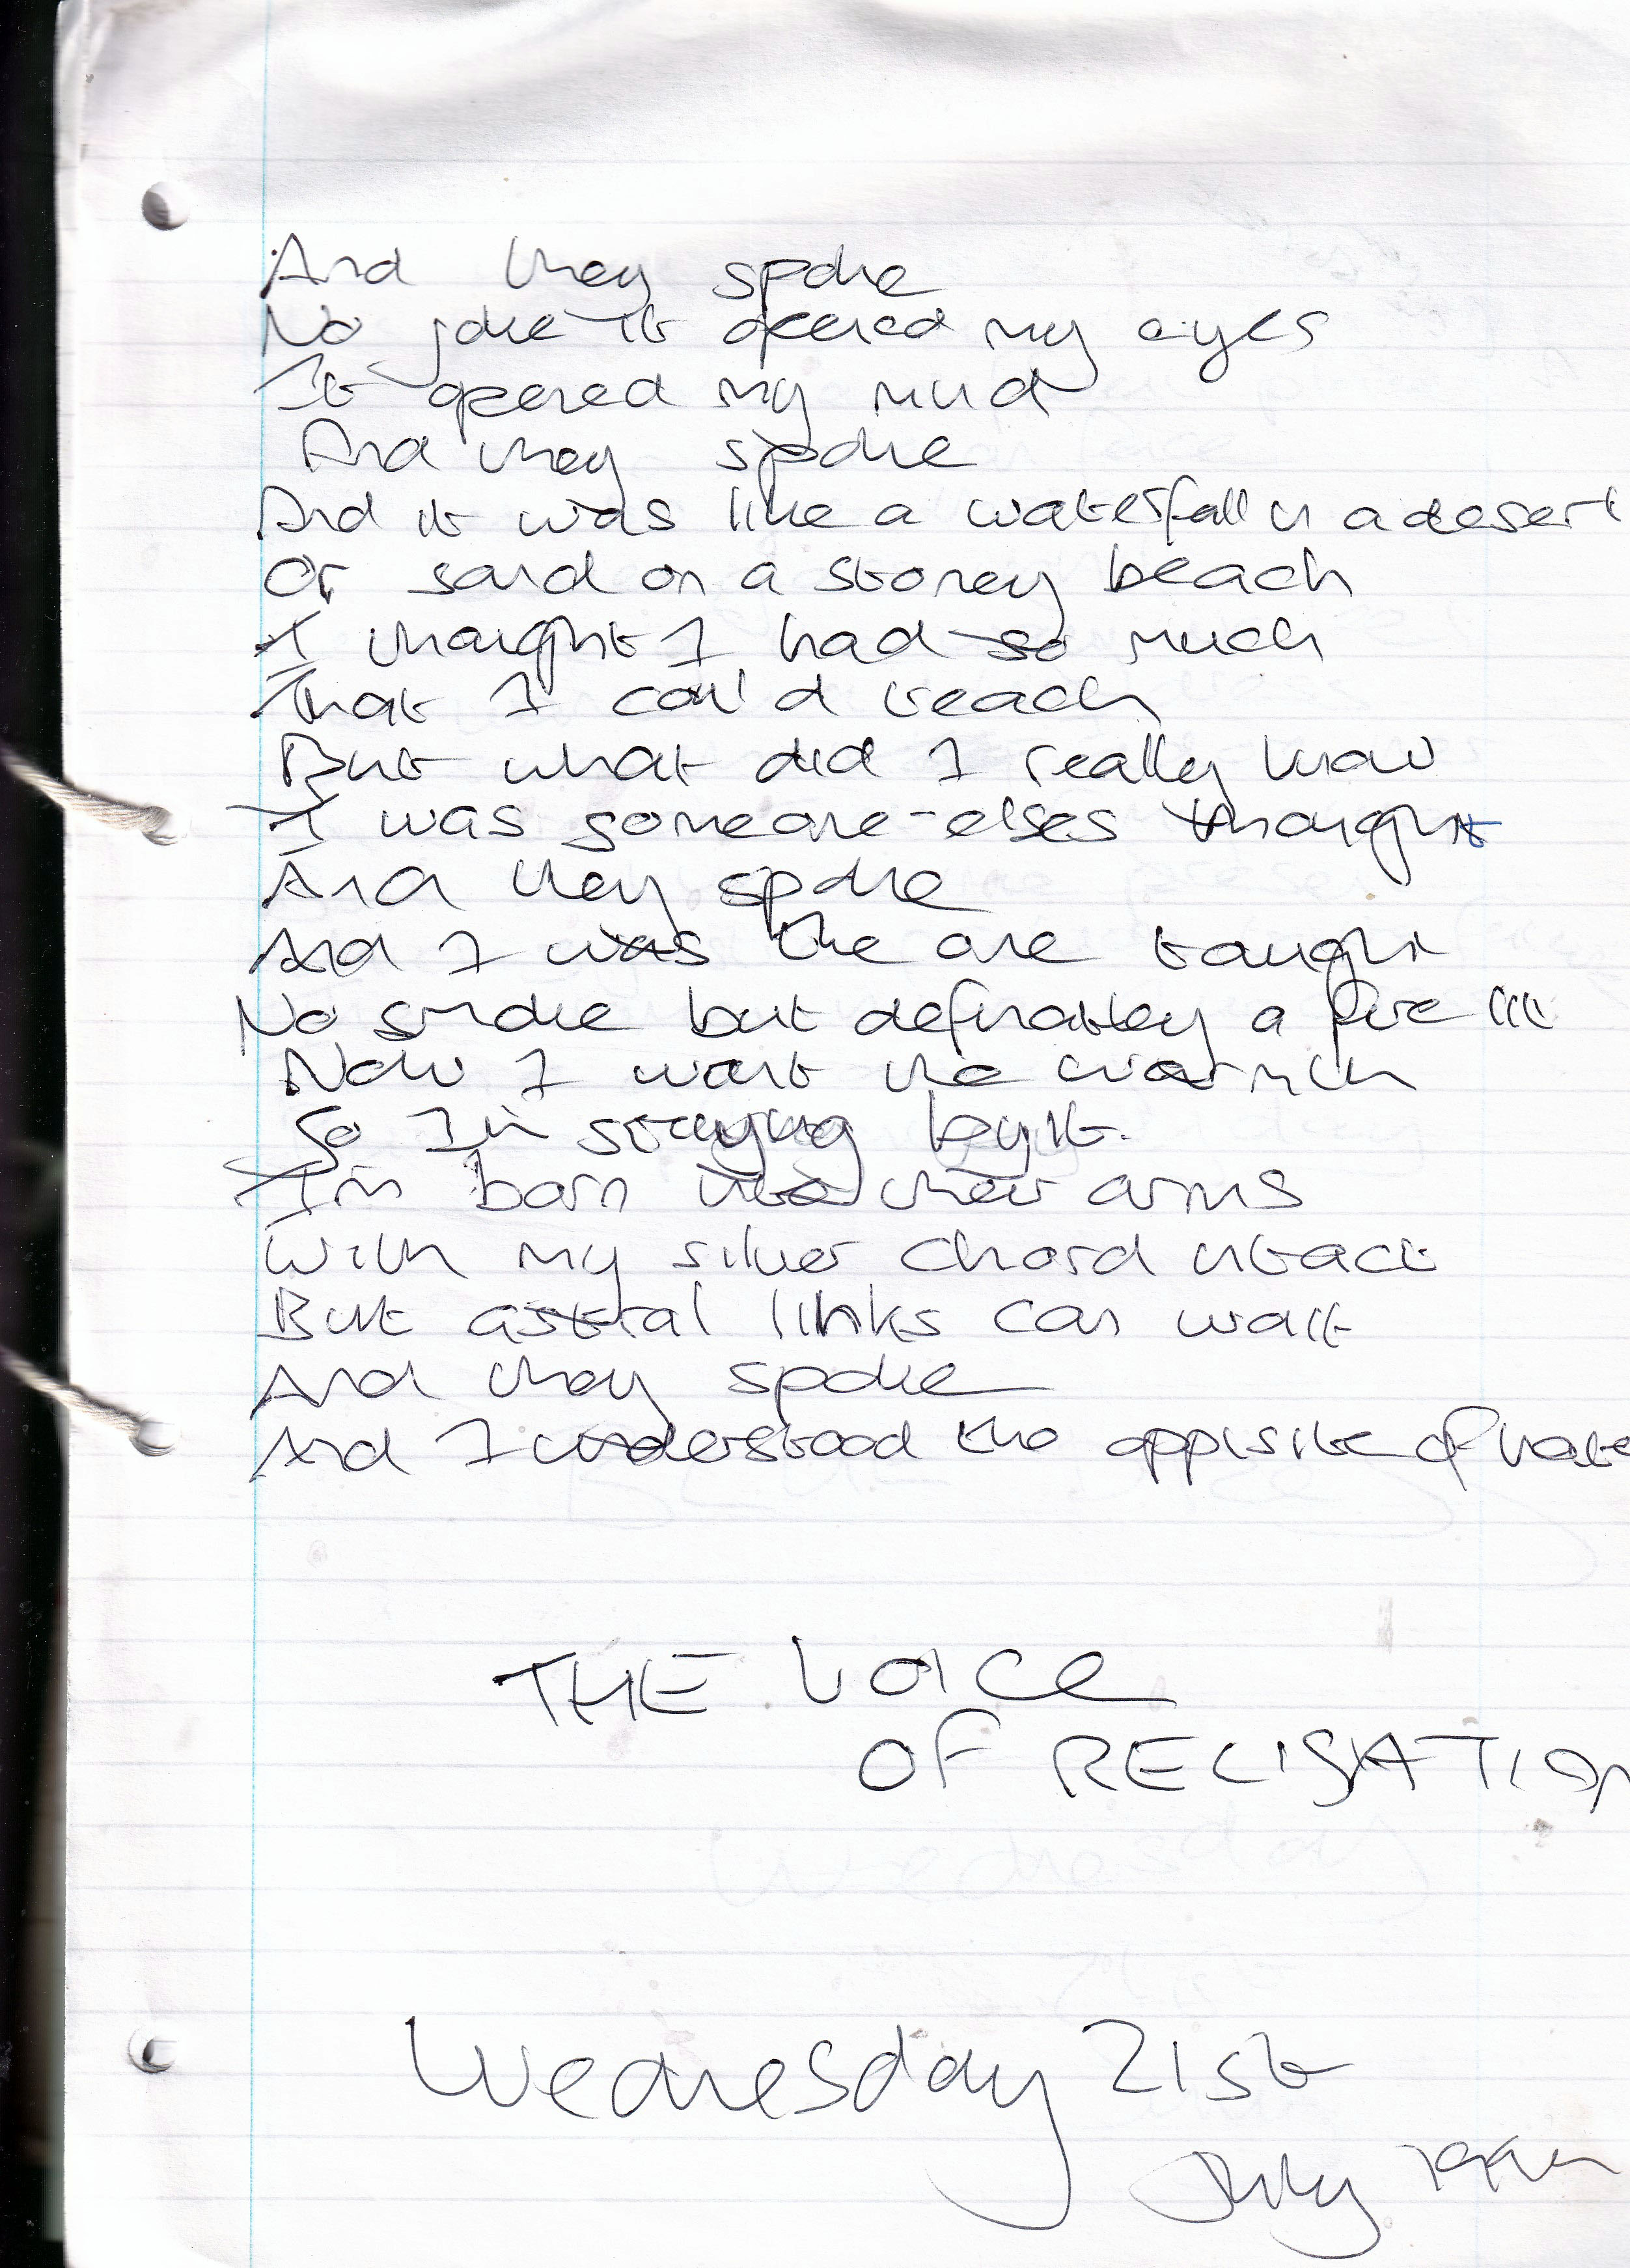 And they spoke
No joke it opened my eyes
It opened my mind
And they spoke
And it was like a waterfall in a desert
Or sand on a stoney beach
I thought I had so much
That I could teach
But what did I really know
I was someone-elses thought
And they spoke
And I was the one taught
No smoke but definatley a fire !!!
Now I want the warmth
So I'm staying by it.
I'm born into their arms
With my silver chord intact
But astral links can wait
And they spoke
And I understood the oppisite of hate
THE Voice
OF RELISATION
Wednesday 21st
July